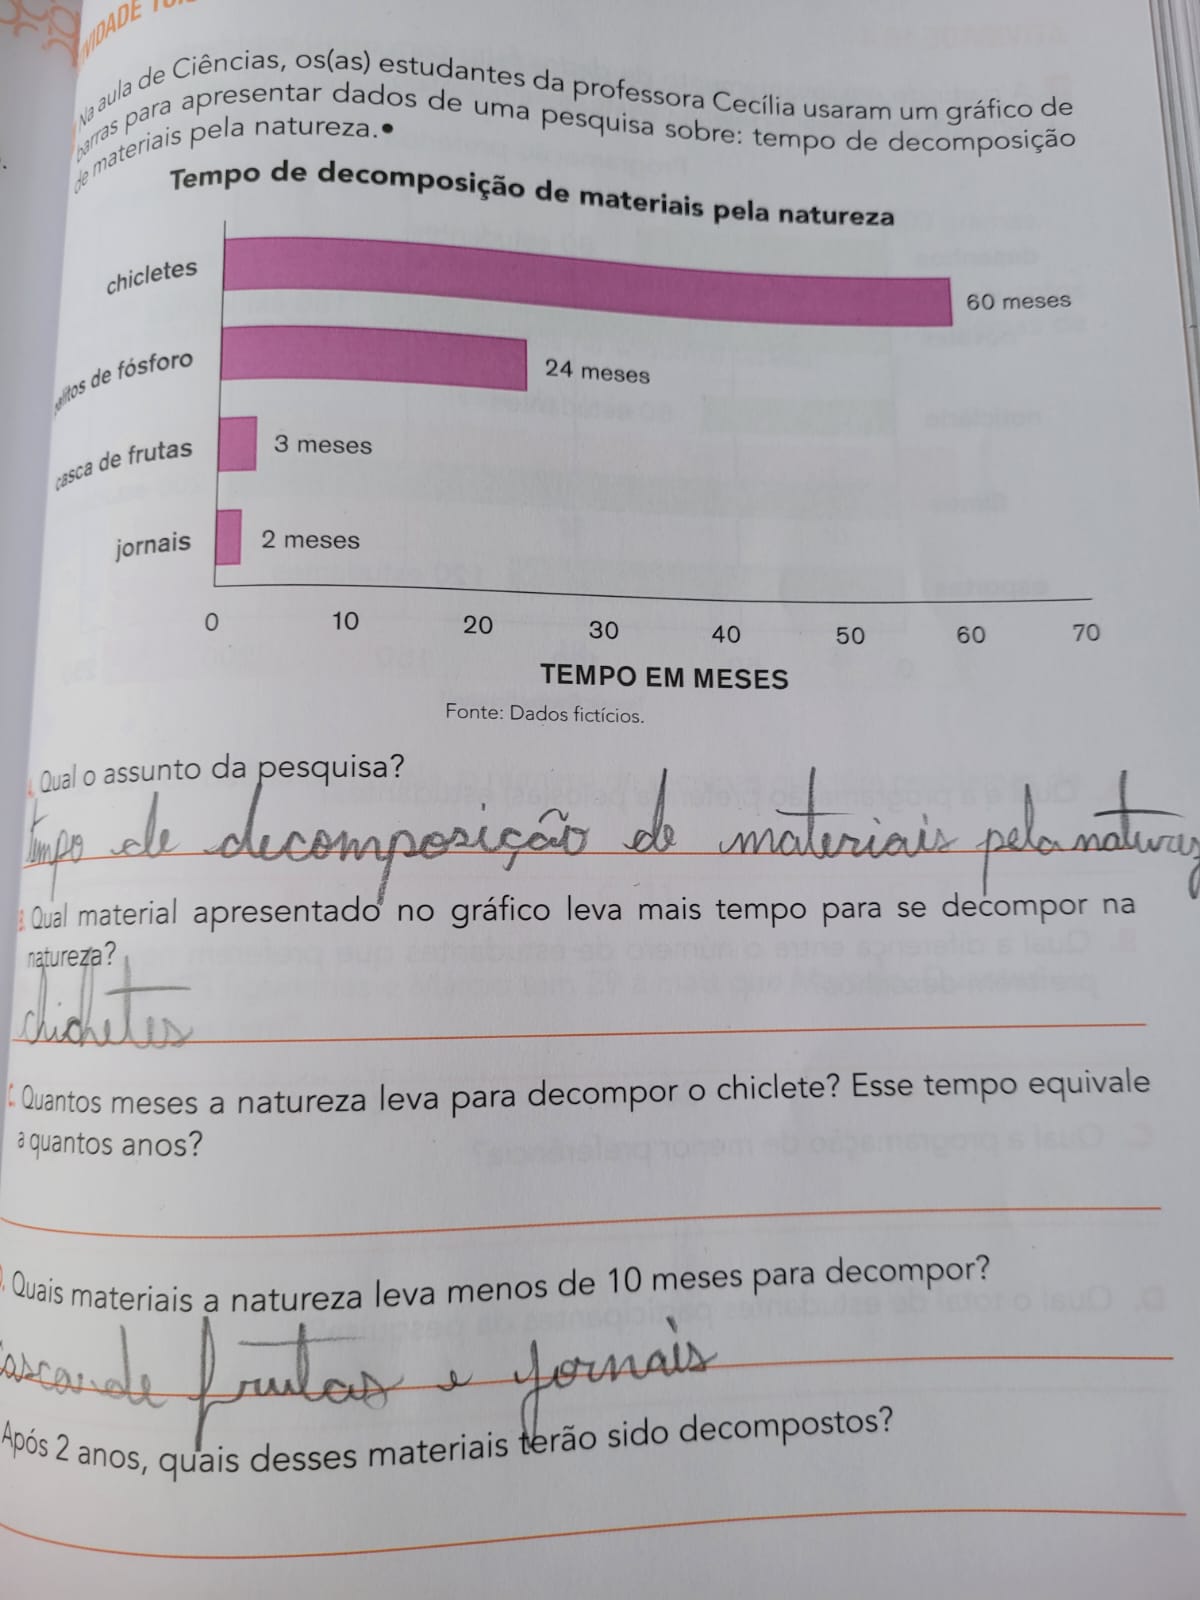 Na aula de Ciências, os(as) estudantes da professora Cecília usaram um gráfico de
barras para apresentar dados de uma pesquisa sobre: tempo de decomposição
de materiais pela natureza.
Tempo de decomposição de materiais pela natureza
chicletes 60 meses
palitos de fósforo 24 meses
casca de frutas 3 meses
jornais 2 meses
0 10 20 30 40 50 60 70
TEMPO EM MESES
Fonte: Dados fictícios.
Qual o assunto da pesquisa?
tempo de decomposição de materiais pela naturez
Qual material apresentado no gráfico leva mais tempo para se decompor na
natureza?
chichetes
C. Quantos meses a natureza leva para decompor o chiclete? Esse tempo equivale
a quantos anos?
Quais materiais a natureza leva menos de 10 meses para decompor?
Casca de frutas e jornais
Após 2 anos, quais desses materiais terão sido decompostos?